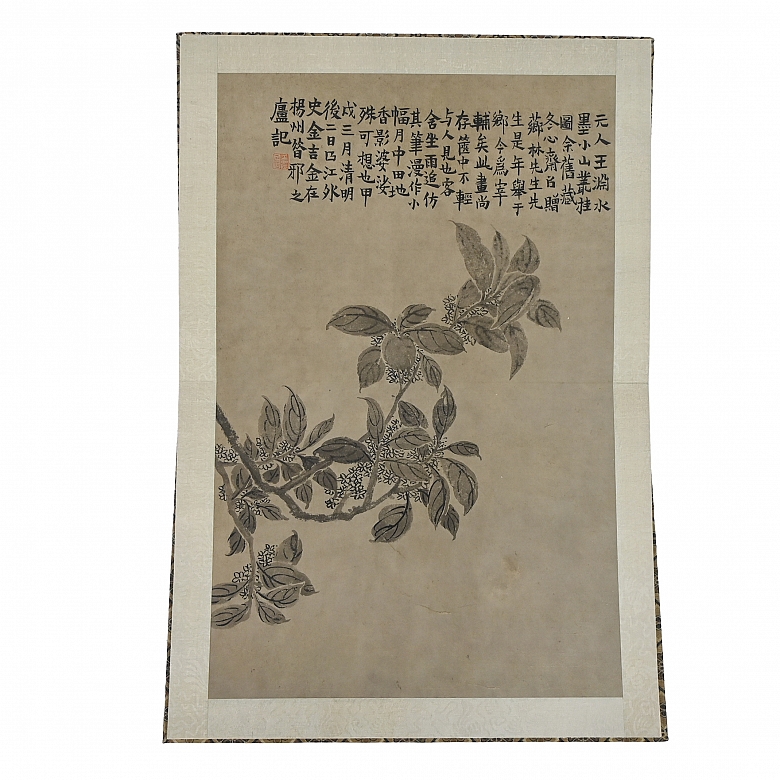 元人王淵水
墨小山叢桂
圖余舊藏
冬心齋㠯贈
薌林先生先
生是年舉于
鄉今爲宰
輔矣此畫尚
存篋中不輕
与人見也客
舍坐雨追仿
其筆漫作小
幅月中田地
香影婆娑
殊可想也甲
戌三月清明
後二日㠯江外
史金吉金在
楊州昔邪之
廬記